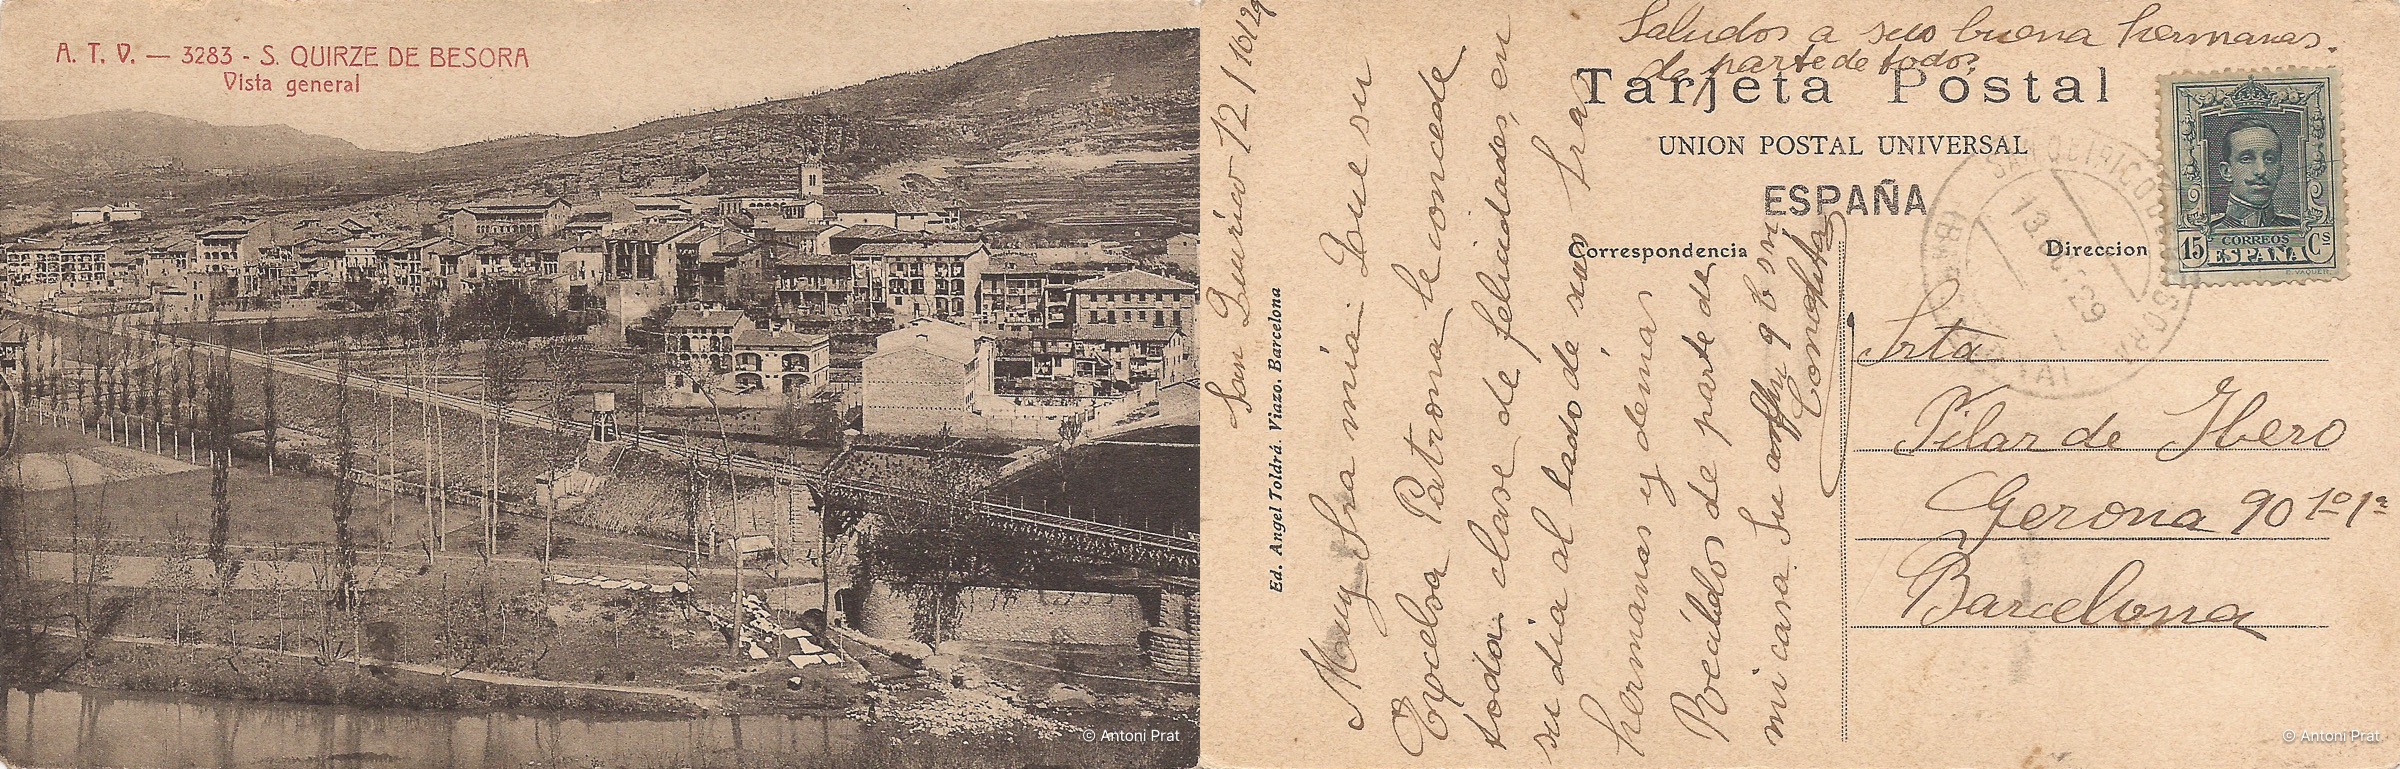 A. T. V. — 3283 - S. QUIRZE DE BESORA
Vista general
© Antoni Prat
San Quirico 12/10/29
Muy Sra mia: Que su
Excelsa Patrona le concede
toda clase de felicidades, en
su dia al lado de sus Sras
hermanas y demas
Recuildos de parte de
mi casa. Su
Ed. Angel Toldrá. Viazo. Barcelona
Saludos a sus buena hermanas.
de parte de todos
Tarjeta Postal
UNION POSTAL UNIVERSAL
ESPAÑA
Correspondencia
Direccion
13
29
15 CORREOS Cs
ESPAÑA
E. VAQUER.
Srta
Pilar de Ibero
Gerona 90 1º 1ª
Barcelona
© Antoni Prat